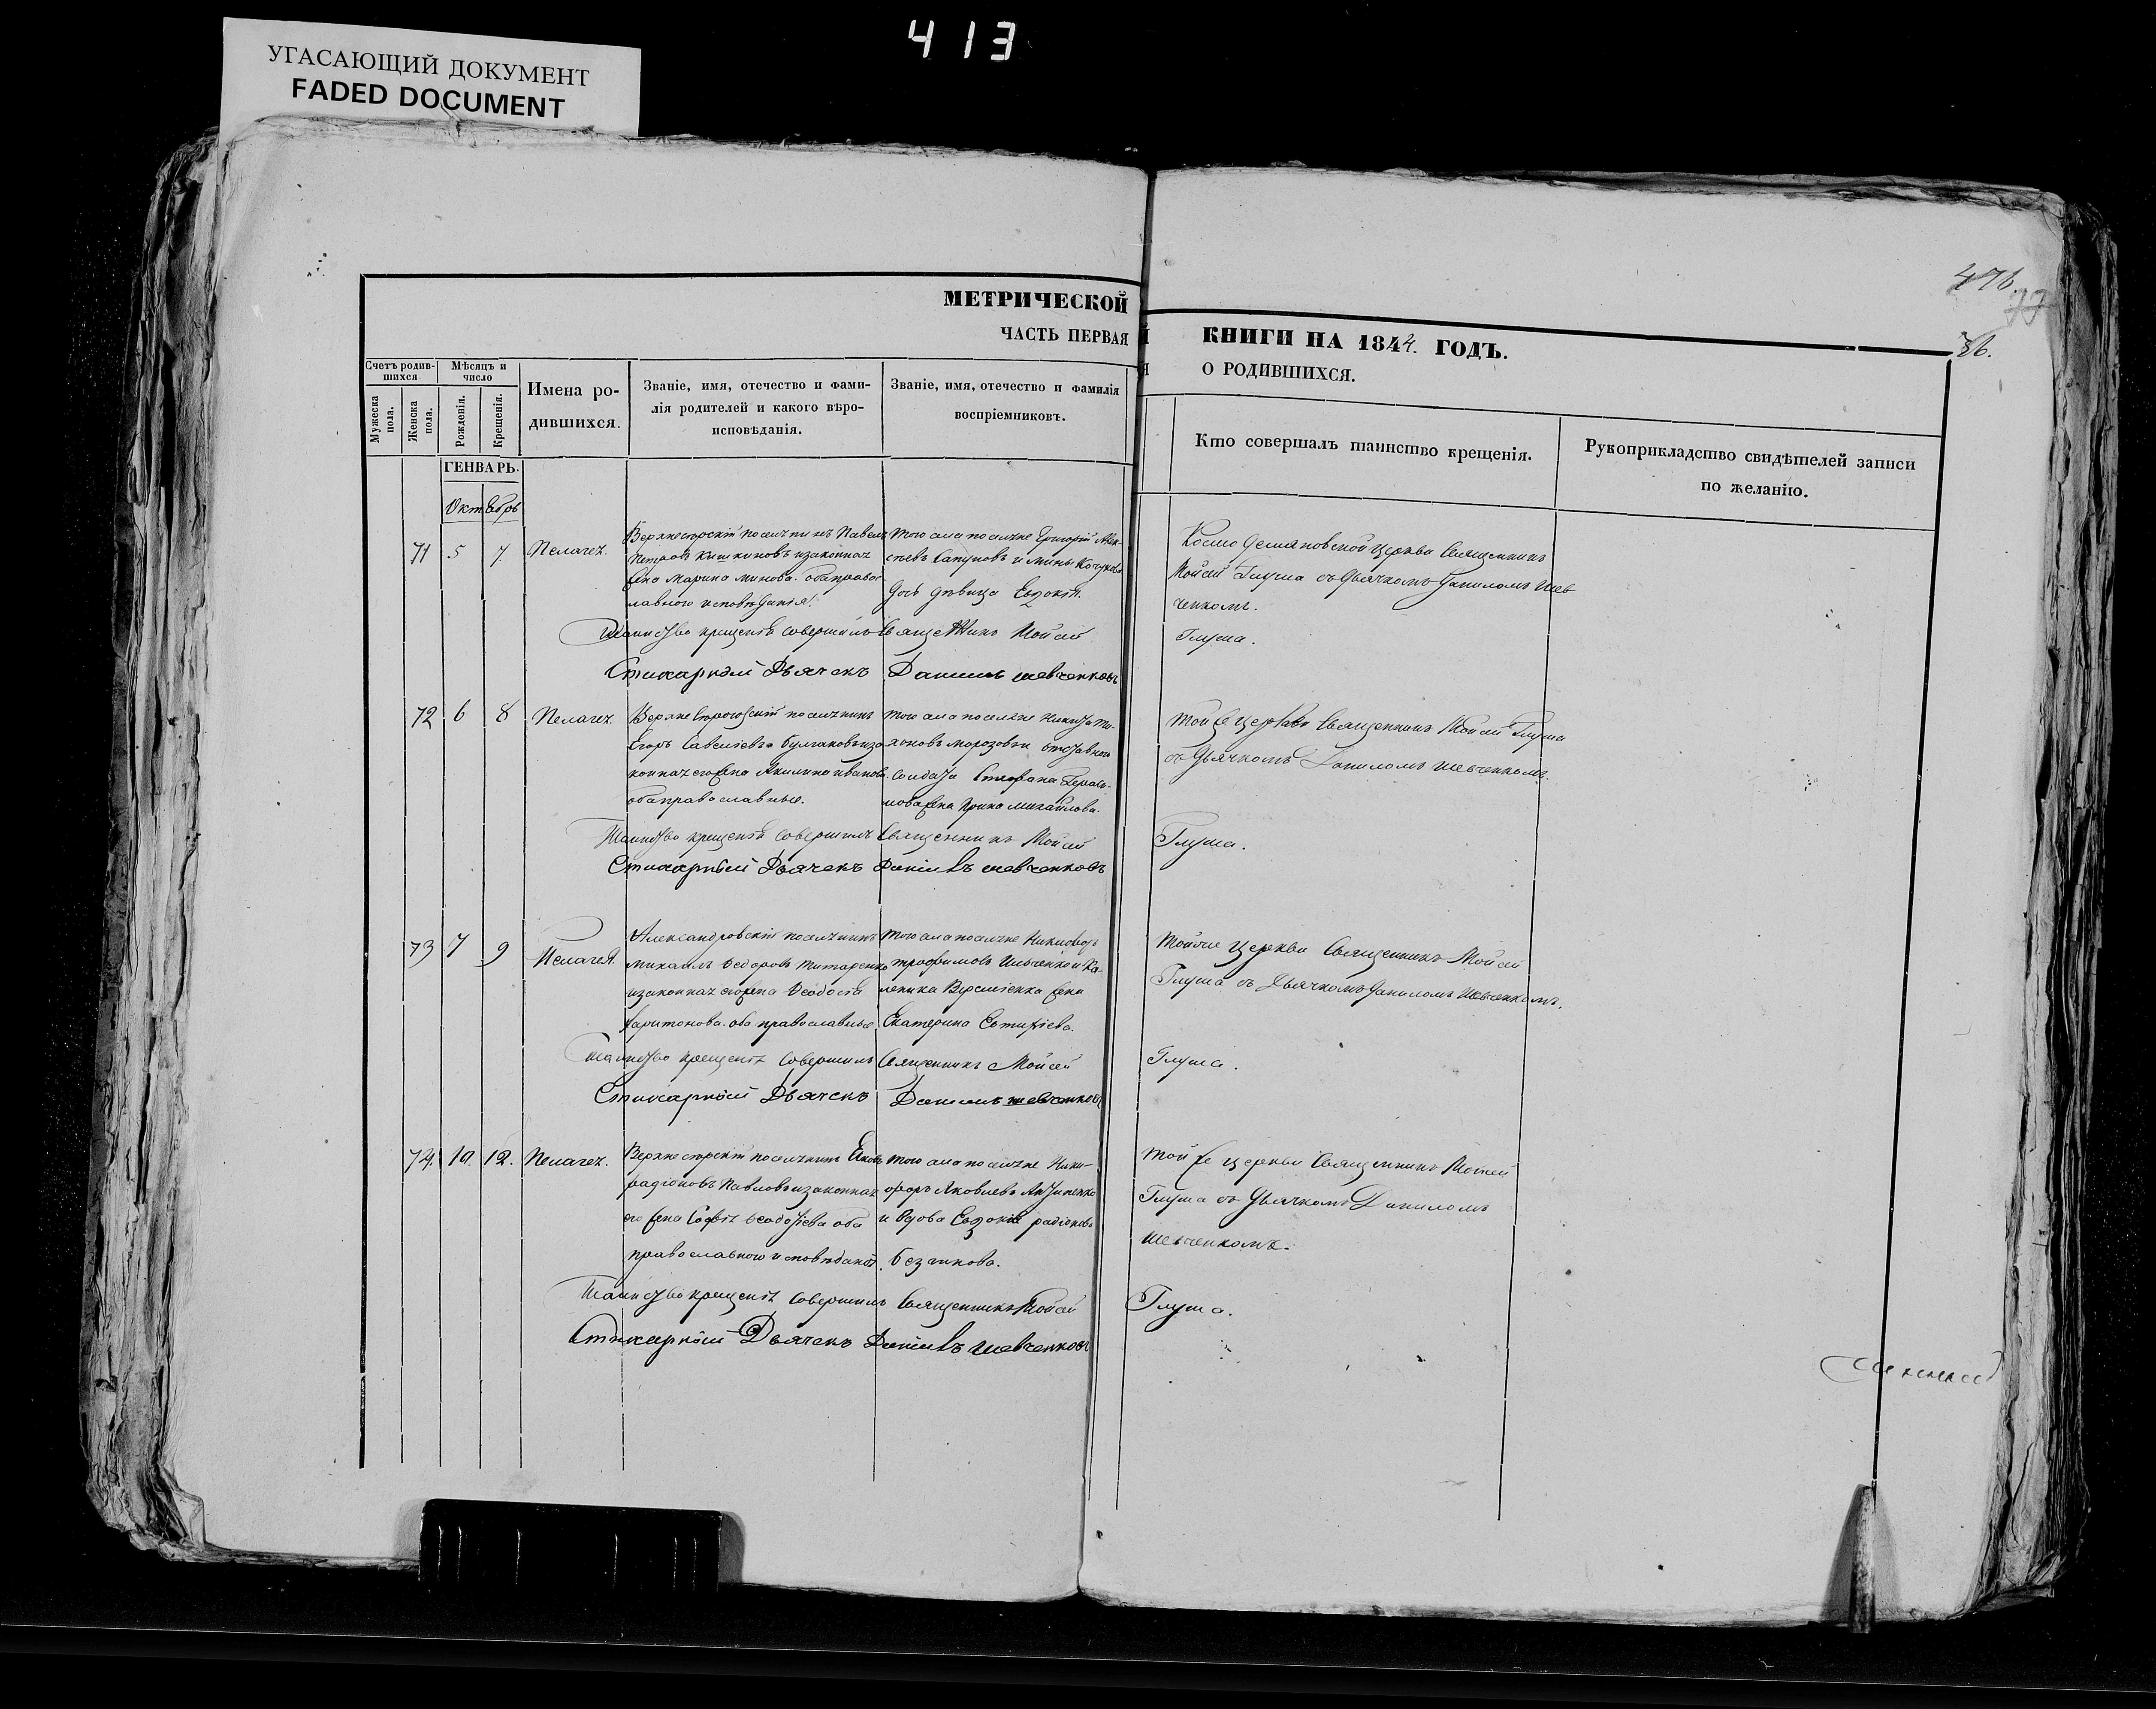 413
УГАСАЮЩИЙ ДОКУМЕНТ
FADED DOCUMENT
476
77
76.
МЕТРИЧЕСКОЙ
КНИГИ НА 1844. ГОДЪ.
ЧАСТЬ ПЕРВАЯ
О РОДИВШИХСЯ.
Счетъ родив-
шихся
Мужеска пола.
Женска пола.
Мѣсяцъ и
число
Рожденія.
Крещенія.
Имена ро-
дившихся.
Званіе, имя, отечество и фами-
лія родителей и какого вѣро-
исповѣданія.
Званіе, имя, отечество и фамилія
воспріемниковъ.
Кто совершалъ таинство крещенія.
Рукоприкладство свидѣтелей записи
по желанію.
ГЕНВАРЬ.
Октябрь
71 5 7 Пелагея.
Петровъ изаконная
Марина православ
лавного исповѣданія.
того села поселяне Григорій Алек-
дочь дѣвица Евдокія.
Космо Демяновской церкви Священникъ
Мойсей Глуша съ Дьячкомъ Данилом Шев
ченкомъ.
Таинство крещенія совершилъ Священникъ Мойсей
Глуша.
Стихарный Дьячекъ Данилъ шевченковъ
72 6 8 Пелагея.
поселянинъ
Егоръ Савеліевъ Булгаковъ иза
конная его жена Акилина Иванова.
оба православные.
того села поселяне Никита Ти-
хоновъ Морозовъ и отставного
солдата Стефана Гераси-
мова жена Ирина Михайлова.
Той же церкви Священникъ Мойсей Глуша
съ Дьячкомъ Данилом Шевченкомъ.
Таинство крещенія совершилъ Священникъ Мойсей
Глуша.
Стихарный Дьячекъ Данилъ шевченковъ
73 7 9 Пелагея.
Александровскій поселянинъ
Михаилъ Ѳедоровъ Титаренко
изаконная его жена Ѳеодосія
Харитонова. оба православные.
того села поселяне Никифоръ
Трофимовъ Шевченко и Ка-
леника жена
Екатерина Евтихіева.
Той же церкви Священникъ Мойсей
Глуша съ Дьячкомъ Данилом Шевченкомъ.
Таинство крещенія совершилъ Священникъ Мойсей
Глуша.
Стихарный Дьячекъ Данилъ шевченковъ
74. 10 12. Пелагея.
поселянинъ
Радіоновъ Павловъ изаконная
его жена Софія Ѳеодотіева оба
православного исповѣданія.
того села поселяне Ники-
форъ Яковлевъ
и вдова Евдокія Радіонова
Той же церкви Священникъ Мойсей
Глуша съ Дьячкомъ Данилом
Шевченкомъ.
Таинство крещенія совершилъ Священникъ Мойсей
Глуша.
Стихарный Дьячекъ Данилъ шевченковъ